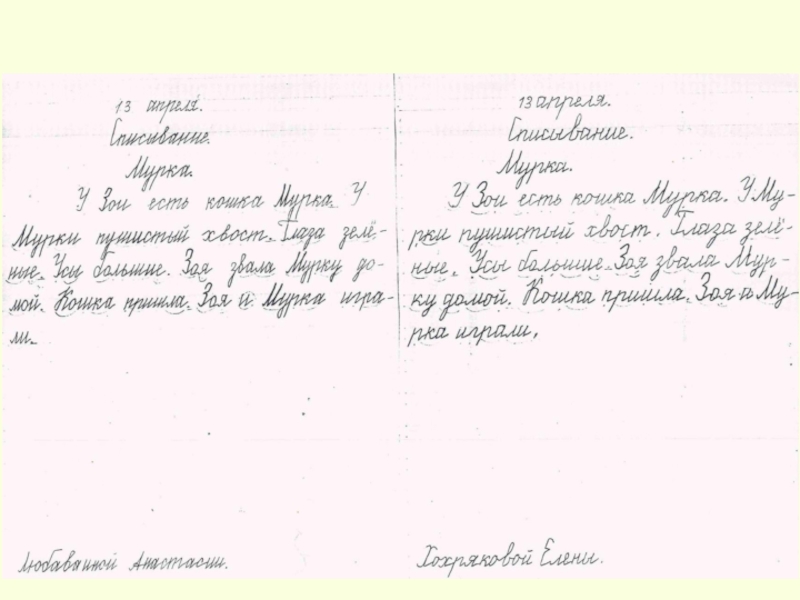 13 апреля.
Списывание.
Мурка.
У Зои есть кошка Мурка. У
Мурки пушистый хвост. Глаза зелё-
ные. Усы большие. Зоя звала Мурку до-
мой. Кошка пришла. Зоя и Мурка игра-
ли.
Анастасии.
13 апреля.
Списывание.
Мурка.
У Зои есть кошка Мурка. У Му-
рки пушистый хвост. Глаза зелё-
ные. Усы большие. Зоя звала Мур-
ку домой. Кошка пришла. Зоя и Му-
рка играли.
Хохряковой Елены.